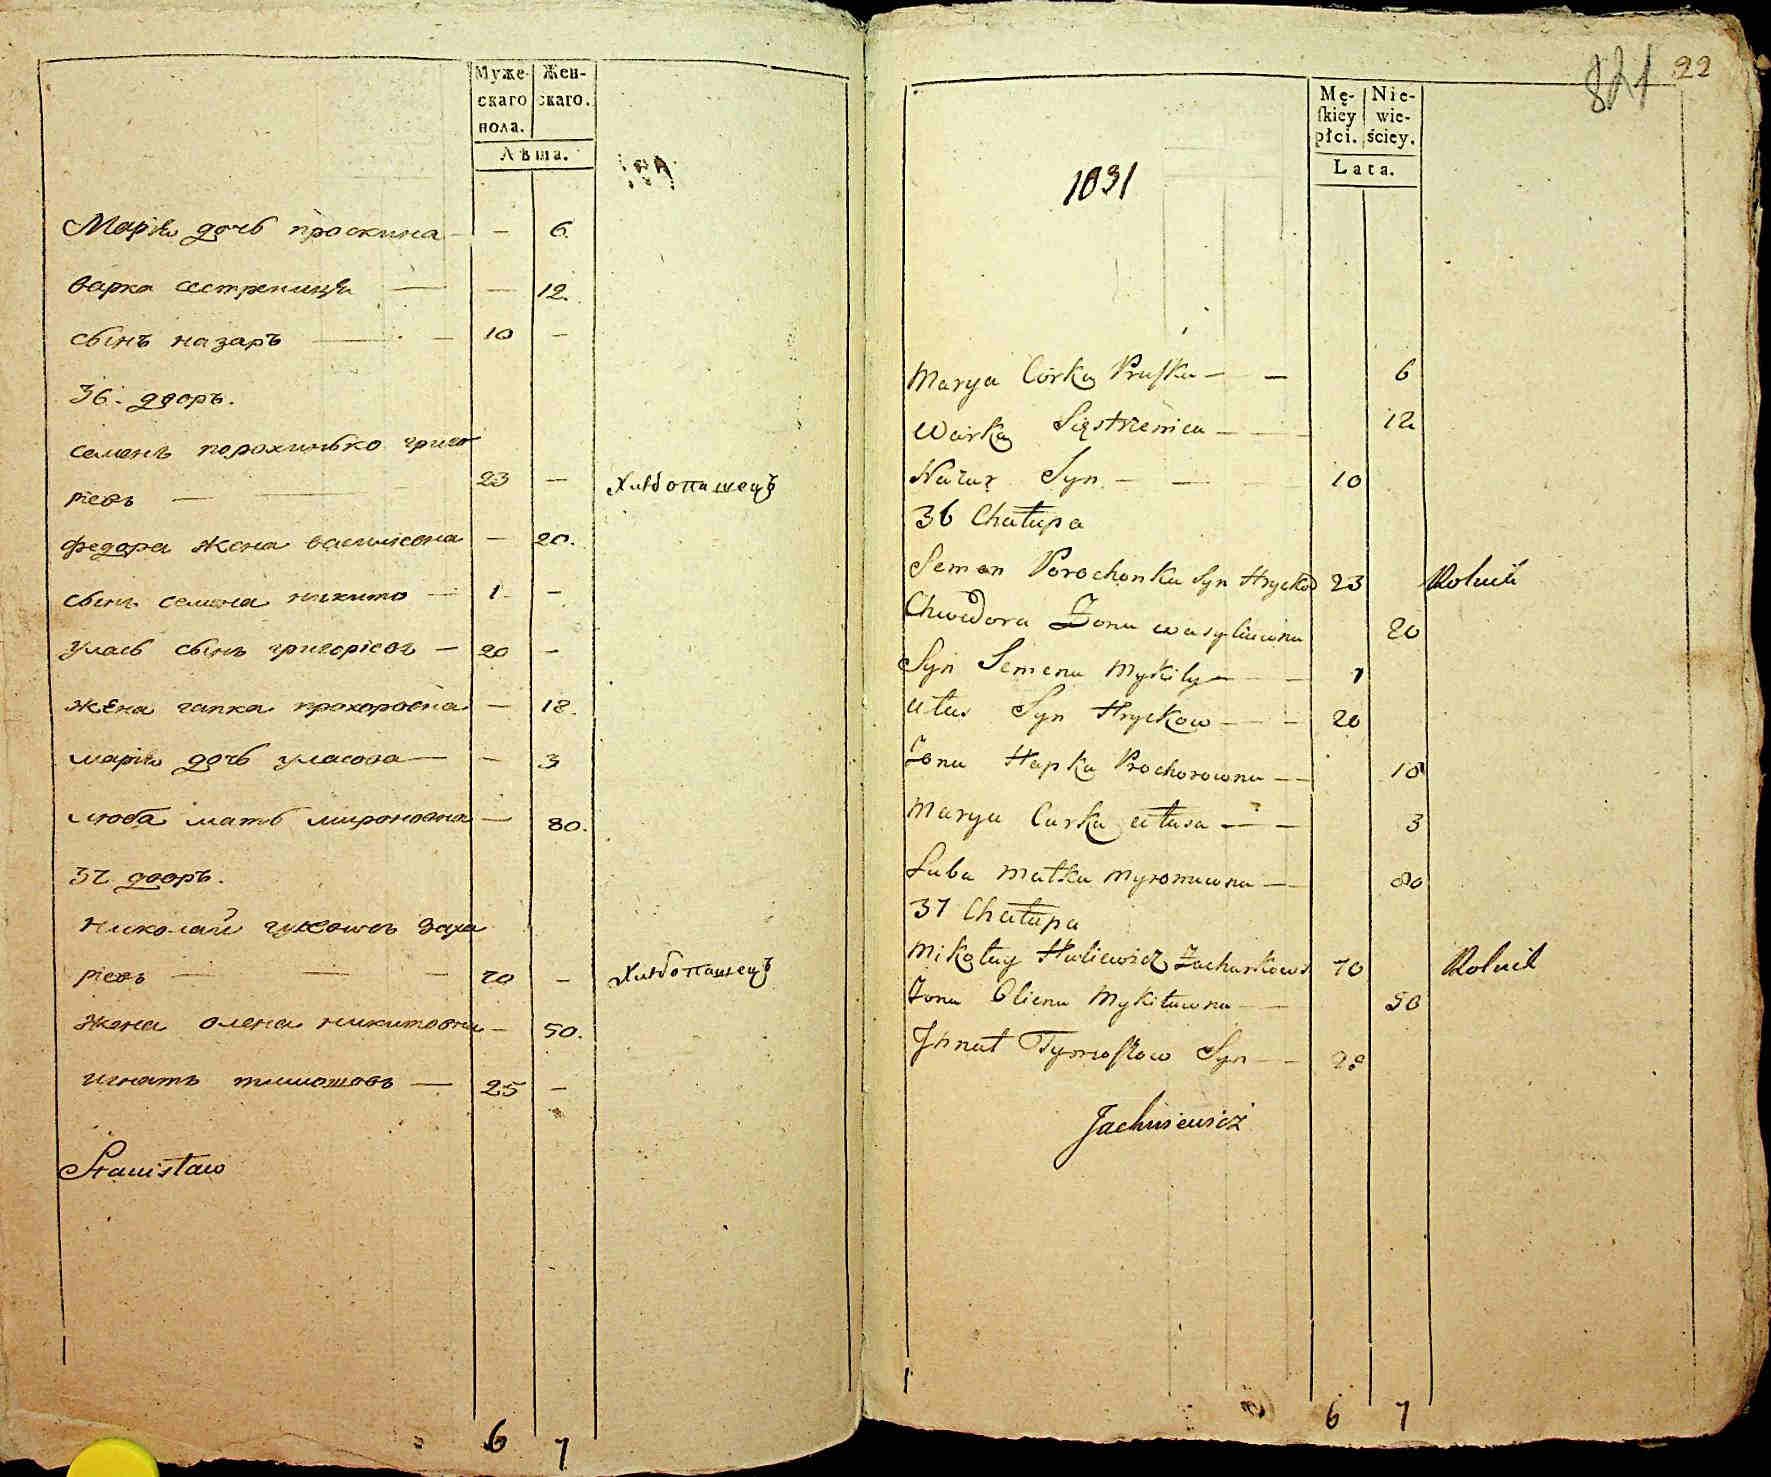 Муже-
скаго
пола.
Жен-
скаго.
Лѣта.
Марія дочь проскина — — 6.
варка сестреница — — 12.
сынъ назаръ — — 10 —
36. дворъ.
семенъ порохинько григо
ріевъ — 23 — Хлѣбопашецъ
федора жена василіевна — 20.
сынъ семена никита — 1 —
уласъ сынъ григоріевъ — 20 —
жена гапка прохоровна — 18.
марія дочь уласова — — 3
люба мать мироновна — 80.
37 дворъ.
николай гулевичъ заха
ріевъ — — — 70 — Хлѣбопашецъ
жена олена никитовна — 50.
игнатъ тимошовъ — 25 —
Stanisław
6 7
821 22
Mę-
ſkiey
płci.
Nie-
wie-
ściey.
Lata.
1031
Marya Corka Pruſka — — 6
Warka Siąstrzenica — — 12
Nazar Syn — — 10
36 Chałupa
Semen Porochonka Syn Hryckow 23 Rolnik
Chwedora Zona wasyliuwna 20
Syn Semena Mykity — — 1
Ułas Syn Hryckow — — 20
Zona Hapka Prochorowna — — 18
Marya Curka Ułasa — — 3
Luba Matka Myronuwna — 80
37 Chałupa
Mikołay Huliewicz Zacharkow 70 Rolnik
Zona Oliena Mykituwna — — 50
Jhnat Tymoſzow Syn — — 25
Jachusiewicz
6 7